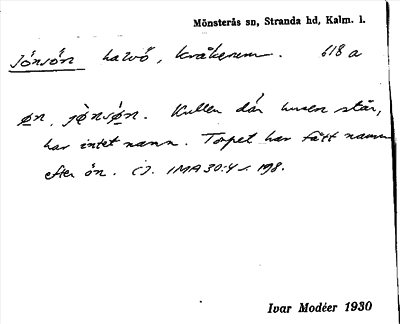 Mönsterås sn, Stranda hd, Kalm. l.
Jónsón halvö, Kråkerum. 618 a
øn, jø̀nsøn. Kullen där husen står,
har intet namn. Torpet har fått namn
efter ön. IMA 30:4 s. 198.
Ivar Modéer 1930